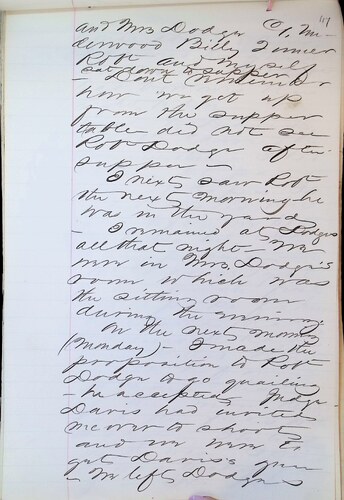 117
and Mrs Dodge C, Un-
derwood Billy Turner
Robt and myself
sat down to supper
Don't remember
how we got up
from the supper
table did not see
Robt Dodge after
supper —
I next saw Robt
the next morning he
was in the yard
— I remained at Dodges
all that night — We
were in Mrs. Dodge's
room which was
the sitting room
during the evening
On the next morning
(Monday) — I made the
proposition to Robt
Dodge to go quailing
— he accepted Judge
Davis had invited
me over to shoot
and we were to
get Davis's gun
— We left Dodges